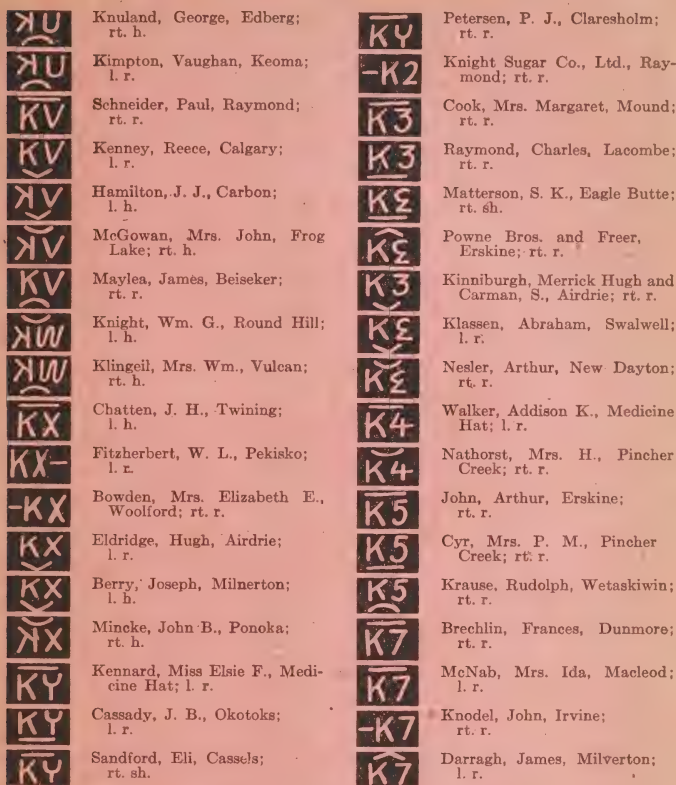 KU Knuland, George, Edberg;
rt. h.
KU Kimpton, Vaughan, Keoma;
l. r.
KV Schneider, Paul, Raymond;
rt. r.
KV Kenney, Reece, Calgary;
l. r.
KV Hamilton, J. J., Carbon;
l. h.
KV McGowan, Mrs. John, Frog
Lake; rt. h.
KV Maylea, James, Beiseker;
rt. r.
KW Knight, Wm. G., Round Hill;
l. h.
KW Klingeil, Mrs. Wm., Vulcan;
rt. h.
KX Chatten, J. H., Twining;
l. h.
KX- Fitzherbert, W. L., Pekisko;
l. r.
-KX Bowden, Mrs. Elizabeth E.,
Woolford; rt. r.
KX Eldridge, Hugh, Airdrie;
l. r.
KX Berry, Joseph, Milnerton;
l. h.
KX Mincke, John B., Ponoka;
rt. h.
KY Kennard, Miss Elsie F., Medi-
cine Hat; l. r.
KY Cassady, J. B., Okotoks;
l. r.
KY Sandford, Eli, Cassels;
rt. sh.
KY Petersen, P. J., Claresholm;
rt. r.
-K2 Knight Sugar Co., Ltd., Ray-
mond; rt. r.
K3 Cook, Mrs. Margaret, Mound;
rt. r.
K3 Raymond, Charles, Lacombe;
rt. r.
KƐ Matterson, S. K., Eagle Butte;
rt. sh.
KƐ Powne Bros. and Freer,
Erskine; rt. r.
K3 Kinniburgh, Merrick Hugh and
Carman, S., Airdrie; rt. r.
KƐ Klassen, Abraham, Swalwell;
l. r.
KƐ Nesler, Arthur, New Dayton;
rt. r.
K4 Walker, Addison K., Medicine
Hat; l. r.
K4 Nathorst, Mrs. H., Pincher
Creek; rt. r.
K5 John, Arthur, Erskine;
rt. r.
K5 Cyr, Mrs. P. M., Pincher
Creek; rt. r.
K5 Krause, Rudolph, Wetaskiwin;
rt. r.
K7 Brechlin, Frances, Dunmore;
rt. r.
K7 McNab, Mrs. Ida, Macleod;
l. r.
-K7 Knodel, John, Irvine;
rt. r.
K7 Darragh, James, Milverton;
l. r.